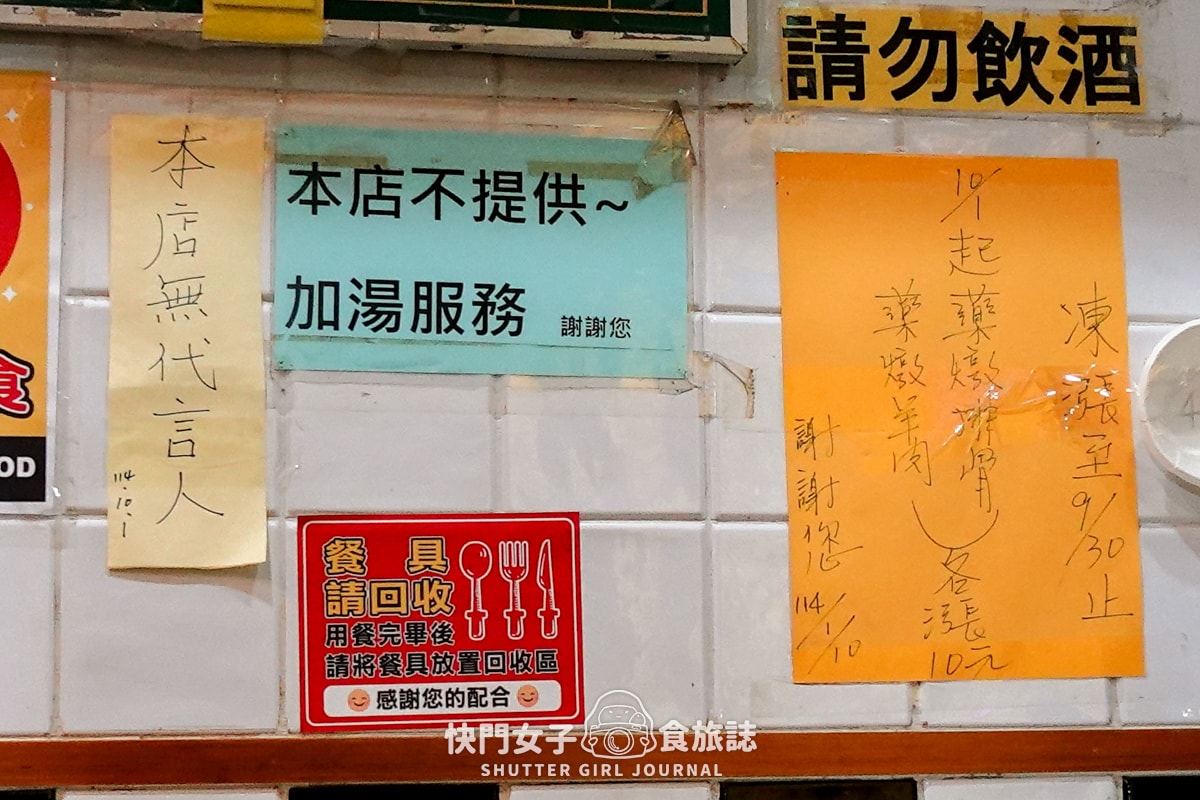 請勿飲酒
本店無代言人
114.10.1
本店不提供~
加湯服務 謝謝您
凍漲至9/30止
10/1起藥燉排骨
藥燉羊肉
各漲10元
謝謝您
114/1/10
食
OD
餐具
請回收
用餐完畢後
請將餐具放置回收區
感謝您的配合
快門女子 食旅誌
SHUTTER GIRL JOURNAL